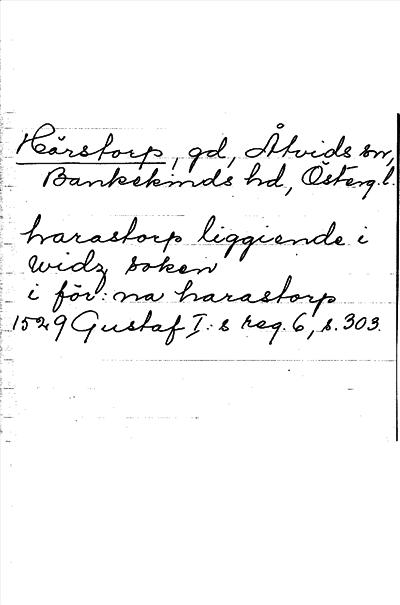 Hårstorp, gd, Åtvids sn,
Bankekinds hd, Österg.l.
harastorp liggiende i
widz soken
i för:na harastorp
1529 Gustaf I:s reg. 6, s. 303.